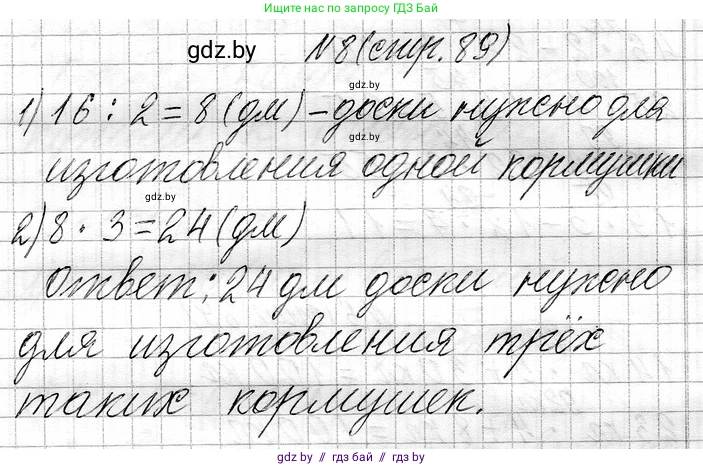 Ищите нас по запросу ГДЗ Бай
gdz.by №8 (стр. 89)
gdz.by
1) 16 : 2 = 8 (дм) – доски нужно для
gdz.by
изготовления одной кормушки
gdz.by
2) 8 · 3 = 24 (дм)
Ответ: 24 дм доски нужно
для изготовления трёх
таких кормушек.
gdz.by // гдз бай // gdz.by